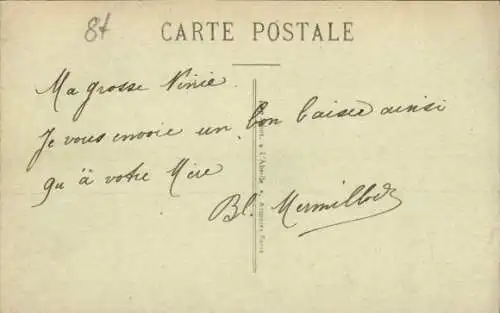 8t
CARTE POSTALE
Ma grosse Ninie
Je vous envoie un bon baiser ainsi
qu'à votre Mère
Bl. Mermillod